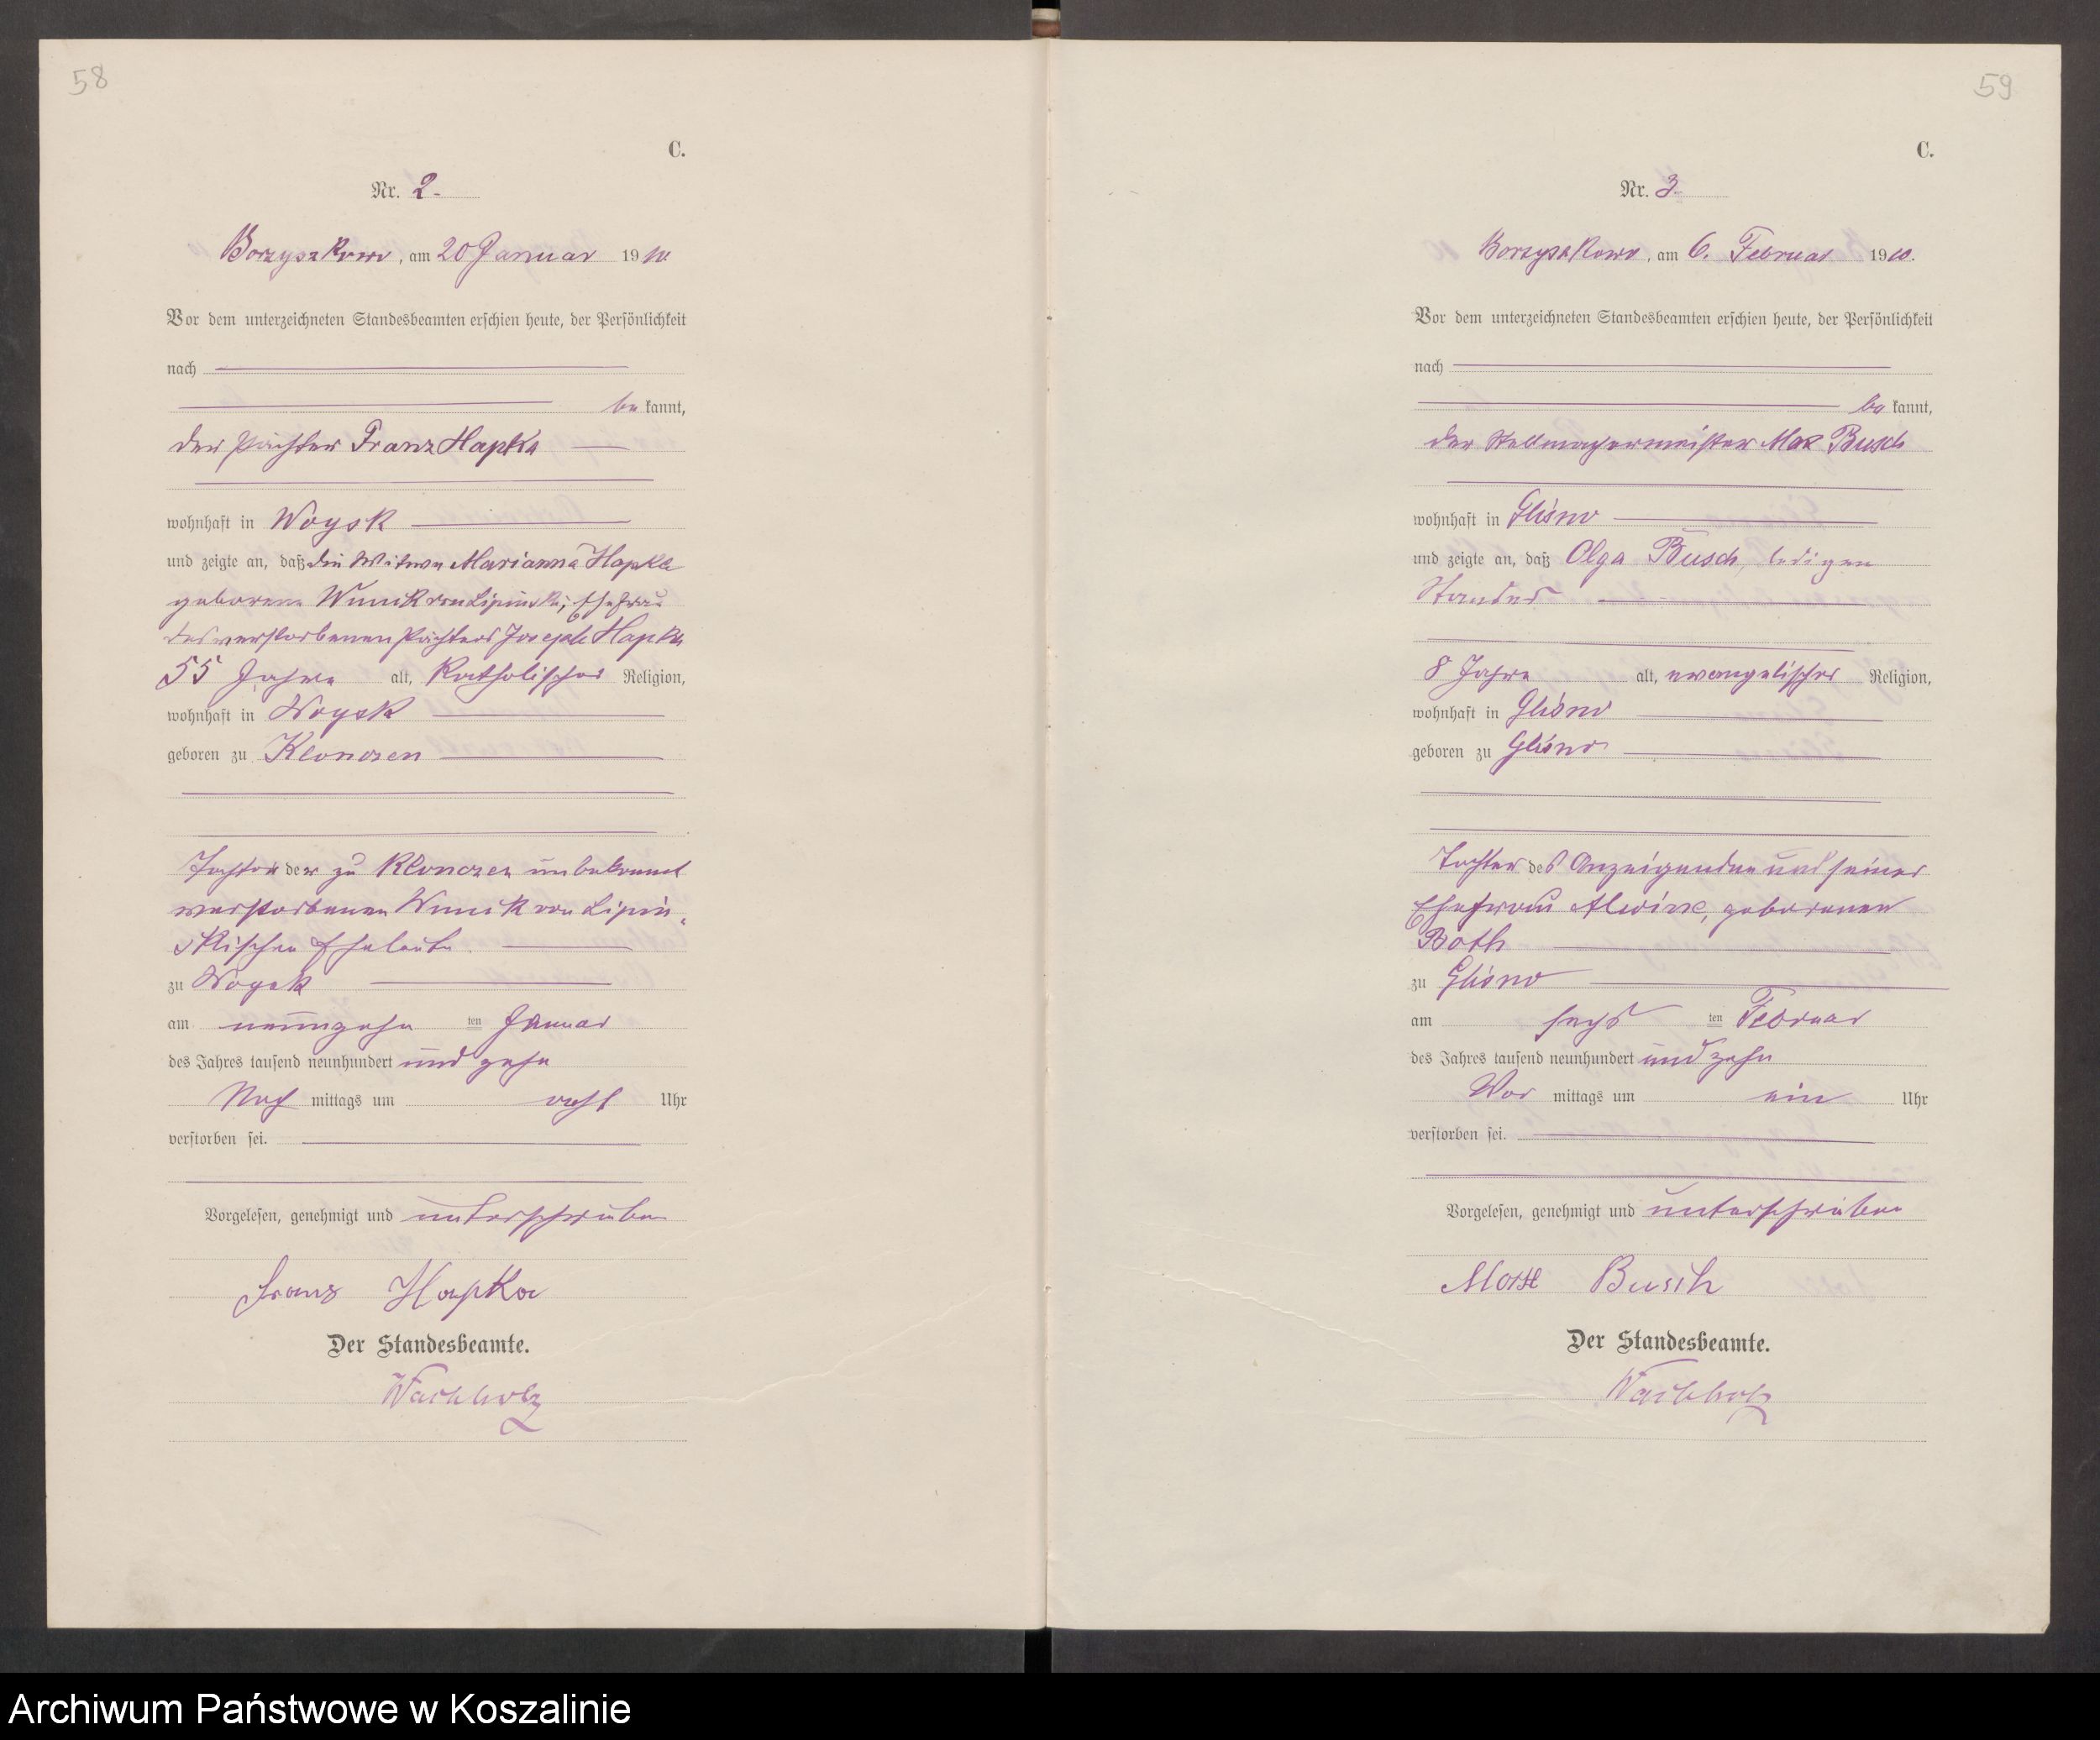 58
C.
Nr. 2.
Borzyszkowo, am 20 Januar 1910
Vor dem unterzeichneten Standesbeamten erschien heute, der Persönlichkeit
nach
be kannt,
der Pächter Franz Hapka
wohnhaft in Woysk
und zeigte an, daß die Witwe Marianna Hapka
geborene Wnuk von Lipinski, Ehefrau
des verstorbenen Pächters Joseph Hapka
55 Jahre alt, Katholischer Religion,
wohnhaft in Woysk
geboren zu Klonczen
Tochter der zu Klonczen unbekannt
verstorbenen Wnuk von Lipin-
skischen Eheleute
zu Woysk
am neunzehn ten Januar
des Jahres tausend neunhundert und zehn
Nach mittags um acht Uhr
verstorben sei.
Vorgelesen, genehmigt und unterschrieben
Franz Hapka
Der Standesbeamte.
Wachholz
59
C.
Nr. 3
Borzyszkowo, am 6. Februar 1910.
Vor dem unterzeichneten Standesbeamten erschien heute, der Persönlichkeit
nach
be kannt,
der Stellmachermeister Max Busch
wohnhaft in Glisno
und zeigte an, daß Olga Busch, ledigen
Standes
8 Jahre alt, evangelischer Religion,
wohnhaft in Glisno
geboren zu Glisno
Tochter des Anzeigenden und seiner
Ehefrau Alwine, geborenen
Both
zu Glisno
am sechs ten Februar
des Jahres tausend neunhundert und zehn
Vor mittags um ein Uhr
verstorben sei.
Vorgelesen, genehmigt und unterschrieben
Max Busch
Der Standesbeamte.
Wachholz
Archiwum Państwowe w Koszalinie